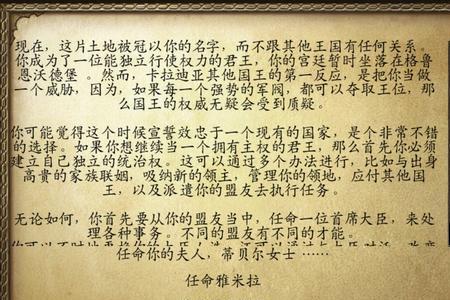 现在，这片土地被冠以你的名字，而不跟其他王国有任何关系。
你成为了一位能独立行使权力的君王，你的宫廷暂时坐落在格鲁
恩沃德堡 。然而，卡拉迪亚其他王国的第一反应，是把你当做
一个威胁，因为，如果每一个强势的军阀，都可以夺取王位，那
么国王的权威无疑会受到质疑。
你可能觉得这个时候宣誓效忠于一个现有的国家，是个非常不错
的选择。如果你想继续当一个拥有主权的君王，那么首先你必须
建立自己独立的统治权。这可以通过多个办法进行，比如与出身
高贵的家族联姻，吸纳新的领主，管理你的领地，应付其他国
王，以及派遣你的盟友去执行任务。
无论如何，你首先要从你的盟友当中，任命一位首席大臣，来处
理各种事务。不同的盟友有不同的才能。
任命你的夫人，蒂贝尔女士 ……
任命雅米拉